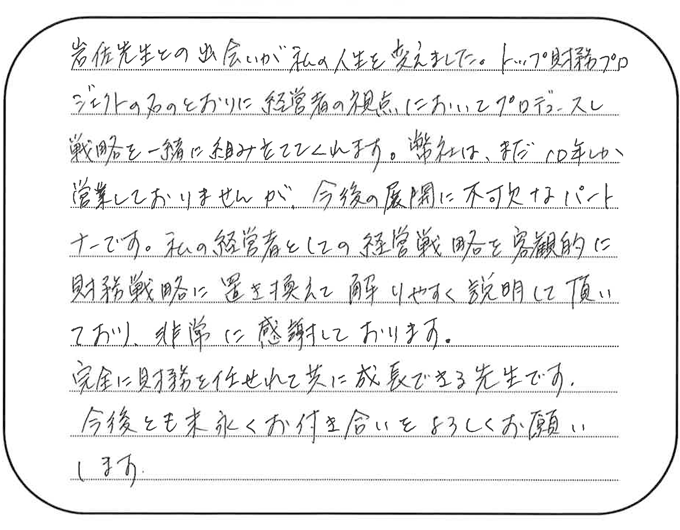 岩佐先生との出会いが私の人生を変えました。トップ財務プロ
ジェクトの名のとおりに経営者の視点においてプロデュースし
戦略を一緒に組み立ててくれます。弊社は、まだ10年しか
営業しておりませんが、今後の展開に不可欠なパート
ナーです。私の経営者としての経営戦略を客観的に
財務戦略に置き換えて解りやすく説明して頂い
ており、非常に感謝しております。
完全に財務を任せれて共に成長できる先生です.
今後とも末永くお付き合いをよろしくお願い
します.